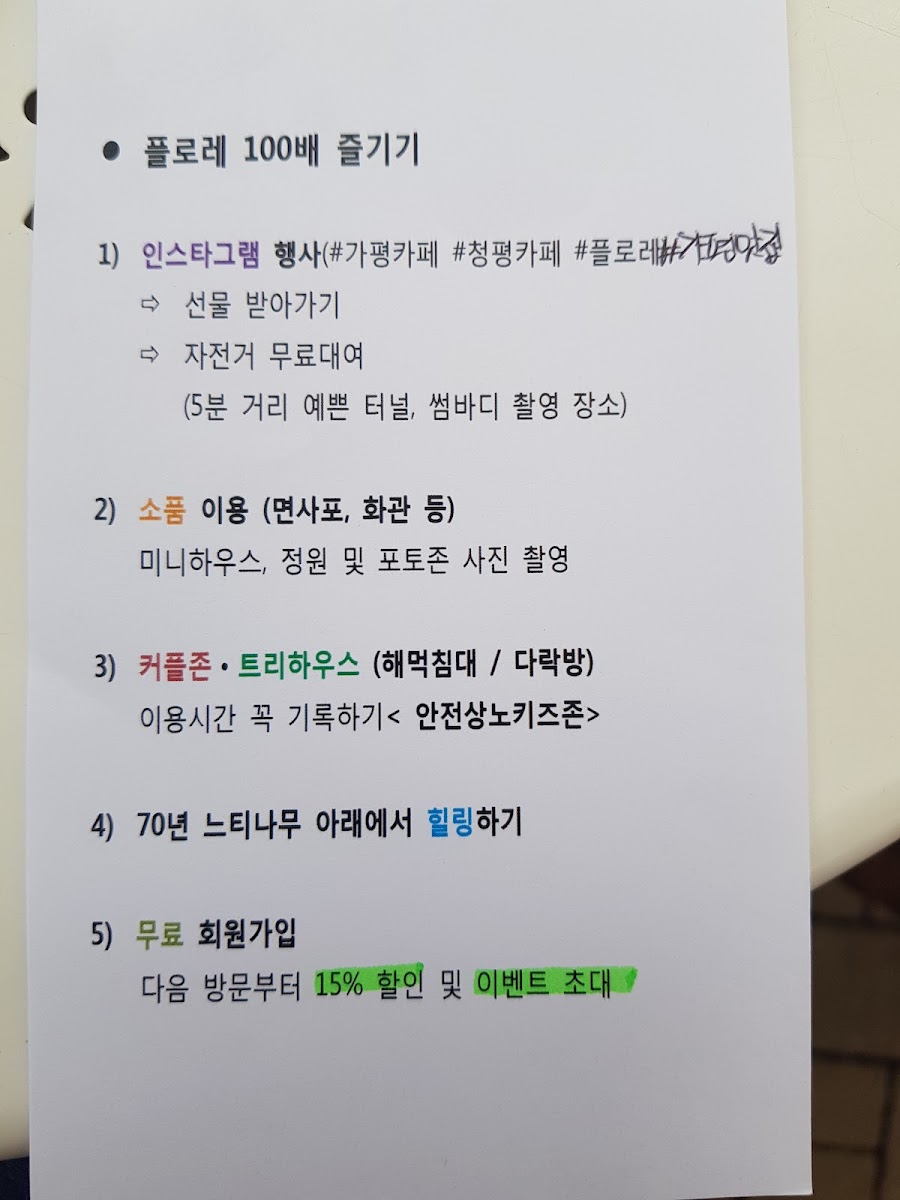 ● 플로레 100배 즐기기
1) 인스타그램 행사(#가평카페 #청평카페 #플로레#가평맛집
⇨ 선물 받아가기
⇨ 자전거 무료대여
(5분 거리 예쁜 터널, 썸바디 촬영 장소)
2) 소품 이용 (면사포, 화관 등)
미니하우스, 정원 및 포토존 사진 촬영
3) 커플존•트리하우스 (해먹침대 / 다락방)
이용시간 꼭 기록하기< 안전상노키즈존>
4) 70년 느티나무 아래에서 힐링하기
5) 무료 회원가입
다음 방문부터 15% 할인 및 이벤트 초대